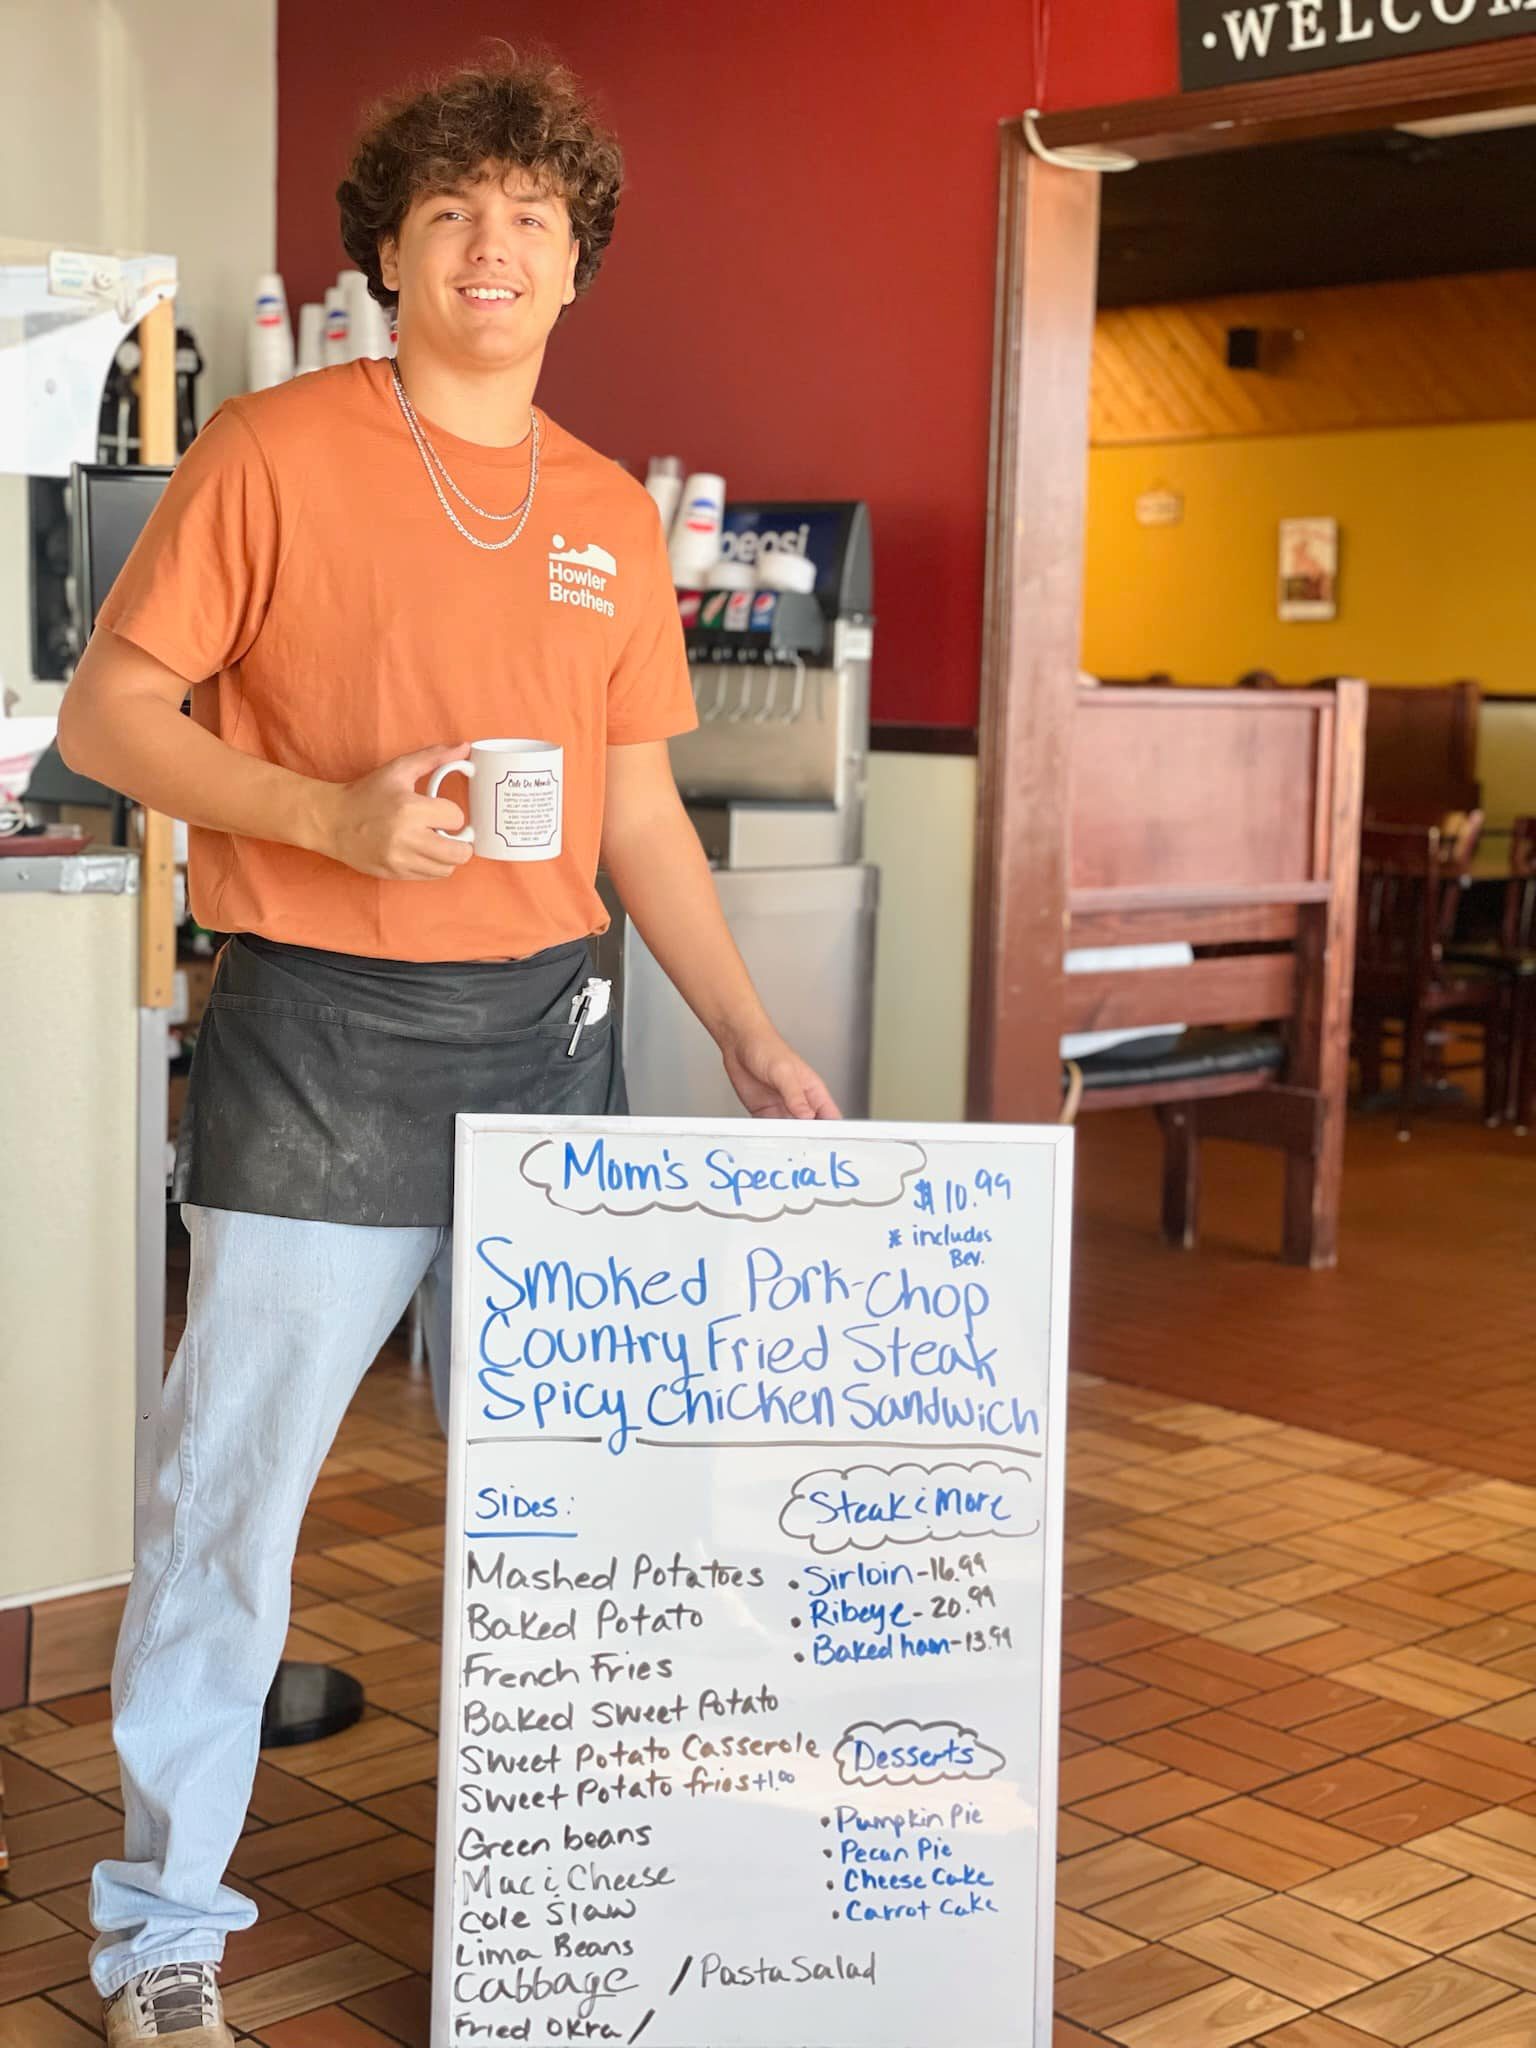 ·WELCOM
pepsi
Howler
Brothers
Cafe Du Monde
Mom's Specials
$10.99
* includes
Bev.
Smoked Pork-Chop
Country Fried Steak
Spicy Chicken Sandwich
Sides:
Mashed Potatoes
Baked Potato
French Fries
Baked Sweet Potato
Sweet Potato Casserole
Sweet Potato fries +1.00
Green beans
Mac & Cheese
Cole Slaw
Lima Beans
Cabbage / Pasta Salad
Fried Okra /
Steak & More
• Sirloin - 16.99
• Ribeye - 20.99
• Baked ham - 13.99
Desserts
• Pumpkin Pie
• Pecan Pie
• Cheese Cake
• Carrot Cake